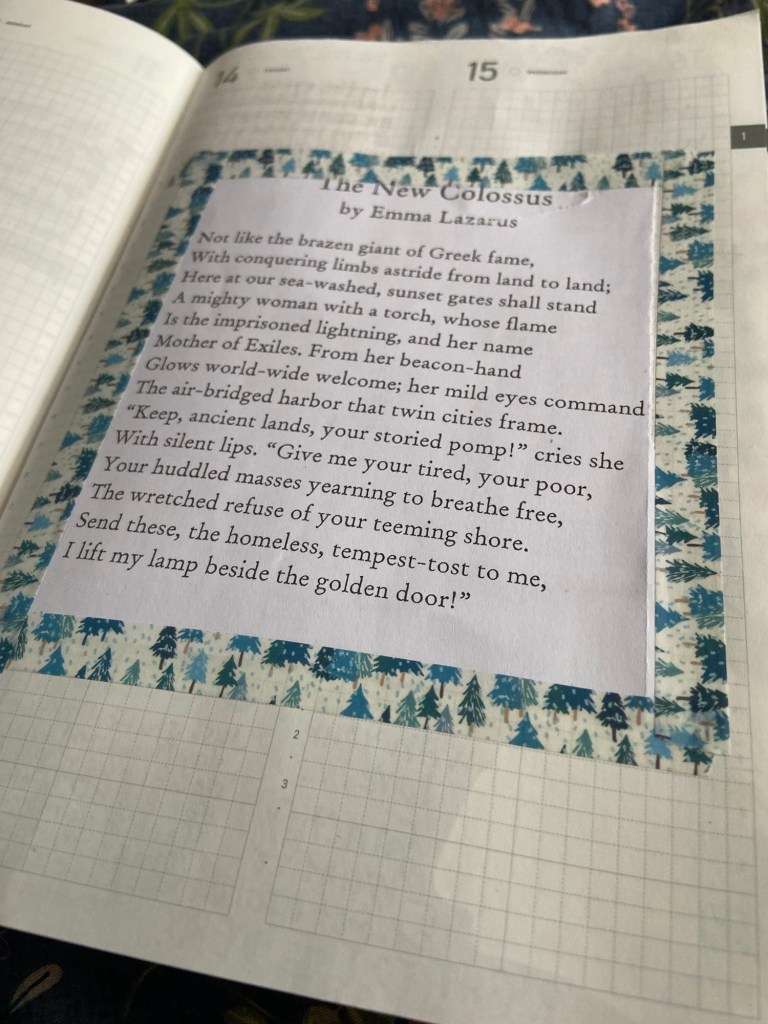 14
15
1
The New Colossus
by Emma Lazarus
Not like the brazen giant of Greek fame,
With conquering limbs astride from land to land;
Here at our sea-washed, sunset gates shall stand
A mighty woman with a torch, whose flame
Is the imprisoned lightning, and her name
Mother of Exiles. From her beacon-hand
Glows world-wide welcome; her mild eyes command
The air-bridged harbor that twin cities frame.
“Keep, ancient lands, your storied pomp!” cries she
With silent lips. “Give me your tired, your poor,
Your huddled masses yearning to breathe free,
The wretched refuse of your teeming shore.
Send these, the homeless, tempest-tost to me,
I lift my lamp beside the golden door!”
2
3